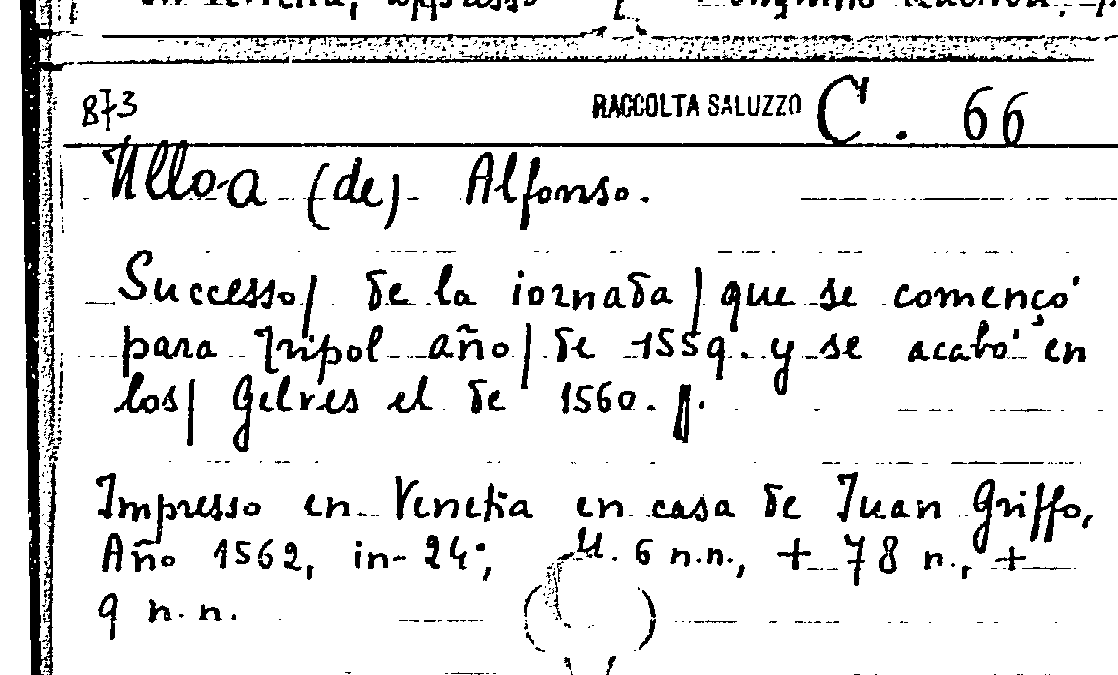 in Venetia, appresso
873 RACCOLTA SALUZZO C. 66
Ulloa (de) Alfonso.
Successo/ de la iornada/ que se començó
para Tripol año/ de 1559. y se acabó en
los/ Gelves el de 1560. //.
Impresso en Venetia en casa de Juan Griffo,
Año 1562, in-24°; ll. 6 n.n., + 78 n., +
9 n.n.